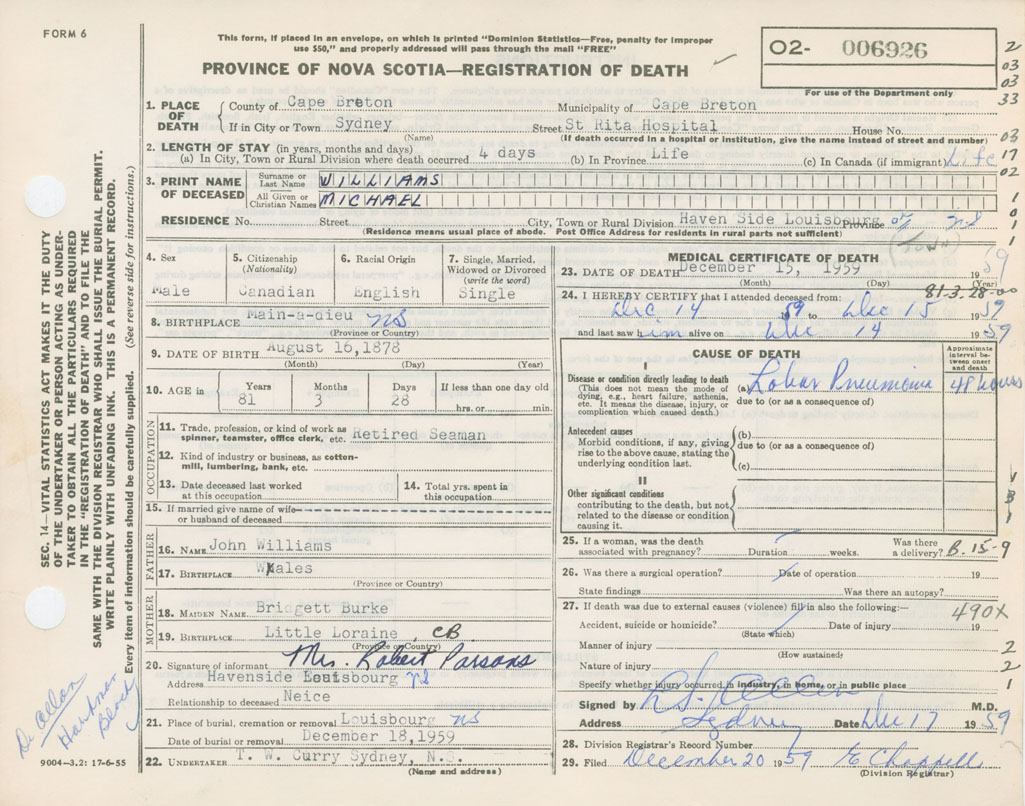 FORM 6
This form, if placed in an envelope, on which is printed "Dominion Statistics—Free, penalty for improper
use $50," and properly addressed will pass through the mail "FREE"
PROVINCE OF NOVA SCOTIA—REGISTRATION OF DEATH
02- 006926
For use of the Department only
2
03
03
33
03
17
02
1
1
0
1
1
1. PLACE OF DEATH County of Cape Breton Municipality of Cape Breton
If in City or Town Sydney Street St Rita Hospital House No.
(Name) (If death occurred in a hospital or institution, give the name instead of street and number)
2. LENGTH OF STAY (in years, months and days)
(a) In City, Town or Rural Division where death occurred 4 days (b) In Province Life (c) In Canada (if immigrant) Life
3. PRINT NAME OF DECEASED Surname or Last Name WILLIAMS
All Given or Christian Names MICHAEL
RESIDENCE No. Street City, Town or Rural Division Haven Side Louisbourg Province of NS
(Residence means usual place of abode. Post Office Address for residents in rural parts not sufficient)
(Town)
4. Sex Male
5. Citizenship (Nationality) Canadian
6. Racial Origin English
7. Single, Married, Widowed or Divorced (write the word) Single
8. BIRTHPLACE Main-a-dieu NS
(Province or Country)
9. DATE OF BIRTH August 16,1878
(Month) (Day) (Year)
10. AGE in Years 81 Months 3 Days 28 If less than one day old hrs. or min.
OCCUPATION
11. Trade, profession, or kind of work as spinner, teamster, office clerk, etc. Retired Seaman
12. Kind of industry or business, as cotton-mill, lumbering, bank, etc.
13. Date deceased last worked at this occupation
14. Total yrs. spent in this occupation
15. If married give name of wife or husband of deceased
FATHER
16. NAME John Williams
17. BIRTHPLACE Wales
(Province or Country)
MOTHER
18. MAIDEN NAME Bridgett Burke
19. BIRTHPLACE Little Loraine, CB
(Province or Country)
20. Signature of informant Mrs. Robert Parsons
Address Havenside Louisbourg NS
Relationship to deceased Neice
21. Place of burial, cremation or removal Louisbourg NS
Date of burial or removal December 18,1959
22. UNDERTAKER T. W. Curry Sydney, N.S.
(Name and address)
MEDICAL CERTIFICATE OF DEATH
23. DATE OF DEATH December 15, 1959 1959
(Month) (Day) (Year)
81-3-28-00
24. I HEREBY CERTIFY that I attended deceased from:
Dec 14 59 to Dec 15 1959
and last saw him alive on Dec 14 1959
CAUSE OF DEATH
Approximate interval between onset and death
I
Disease or condition directly leading to death
(This does not mean the mode of dying, e.g., heart failure, asthenia, etc. It means the disease, injury, or complication which caused death.)
(a) Lobar Pneumonia 48 hours
due to (or as a consequence of)
Antecedent causes
Morbid conditions, if any, giving rise to the above cause, stating the underlying condition last.
(b)
due to (or as a consequence of)
(c)
II
Other significant conditions
contributing to the death, but not related to the disease or condition causing it.
1
3
1
1
25. If a woman, was the death associated with pregnancy? Duration weeks. Was there a delivery? B-15-9
26. Was there a surgical operation? Date of operation 19
State findings Was there an autopsy?
27. If death was due to external causes (violence) fill in also the following:—
490X
Accident, suicide or homicide? Date of injury 19
(State which)
Manner of injury 2
(How sustained)
Nature of injury 2
Specify whether injury occurred in industry, in home, or in public place 1
Signed by M.D.
Address Sydney Date Dec 17 1959
28. Division Registrar's Record Number
29. Filed December 20 1959 E Chappell
(Division Registrar)
SEC. 14—VITAL STATISTICS ACT MAKES IT THE DUTY
OF THE UNDERTAKER OR PERSON ACTING AS UNDER-
TAKER TO OBTAIN ALL THE PARTICULARS REQUIRED
IN THE "REGISTRATION OF DEATH" AND TO FILE THE
SAME WITH THE DIVISION REGISTRAR WHO SHALL ISSUE THE BURIAL PERMIT.
WRITE PLAINLY WITH UNFADING INK. THIS IS A PERMANENT RECORD.
Every item of information should be carefully supplied. (See reverse side for instructions.)
9004—3.2: 17-6-55